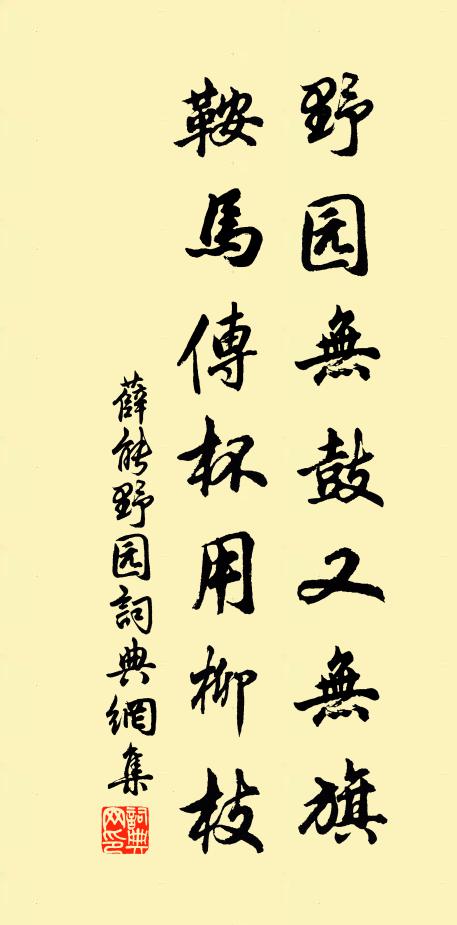 野园無鼓又無旗
鞍馬傳杯用柳枝
薛能野园詞典網集
詞典网印